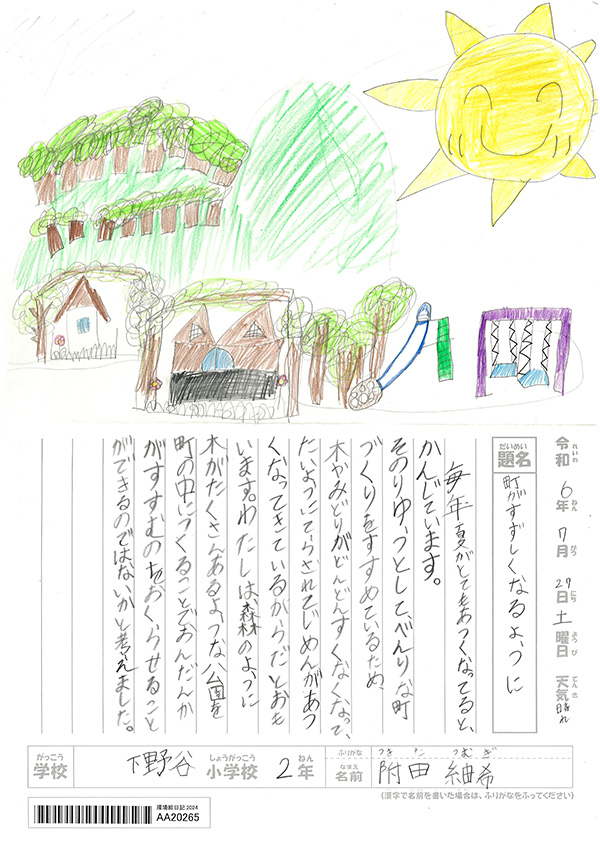 令和 6年 7月 27日 土曜日 天気 晴れ
れいわ ねん がつ にち ようび てんき
だいめい
題名
町がすずしくなるように
毎年夏がとてもあつくなってると、
かんじています。
そのりゆうとしてべんりな町
づくりをすすめているため、
木やみどりがどんどんすくなくなって、
たいようにてらされてじめんがあつ
くなってきているからだとおも
います。わたしは森林のように
木がたくさんあるような公園を
町の中につくることでおんだんか
がすすむのをおくらせること
ができるのではないかと考えました。
がっこう しょうがっこう ねん
学校 下野谷 小学校 2年
ふりがな つきた つむぎ
なまえ
名前 附田 紬希
(漢字で名前を書いた場合は、ふりがなをふってください)
環境絵日記2024
AA20265